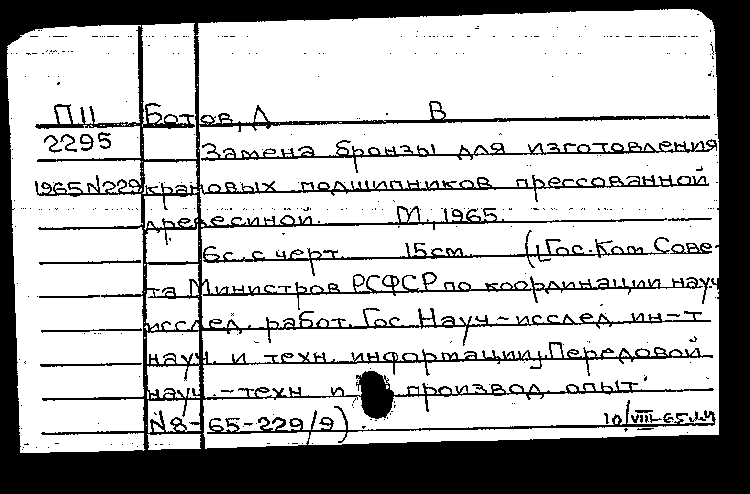 П11 Ботов, Д В
2295 Замена бронзы для изготовления
1965N229 крановых подшипников прессованной
древесиной. М., 1965.
6с. с черт. 15см. ([Гос. Ком Сове-
та Министров РСФСР по координации науч
исслед. работ. Гос Науч-исслед ин-т
науч. и техн. информации] Передовой
науч.-техн и производ опыт
N8-65-229/9).
10/VIII-65